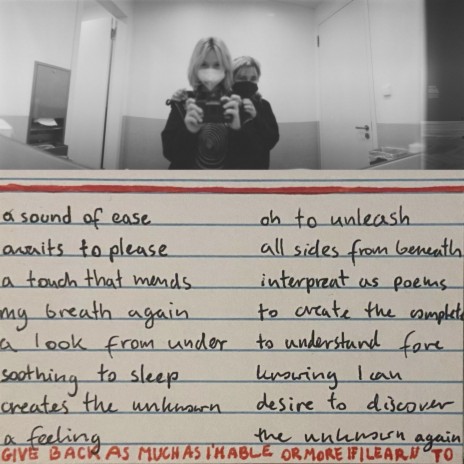 a sound of ease
awaits to please
a touch that mends
my breath again
a look from under
soothing to sleep
creates the unknown
a feeling
oh to unleash
all sides from beneath
interpreat as poems
to create the complete
to understand fore
knowing I can
desire to discover
the unknown again
GIVE BACK AS MUCH AS I'M ABLE OR MORE IF I LEARN TO